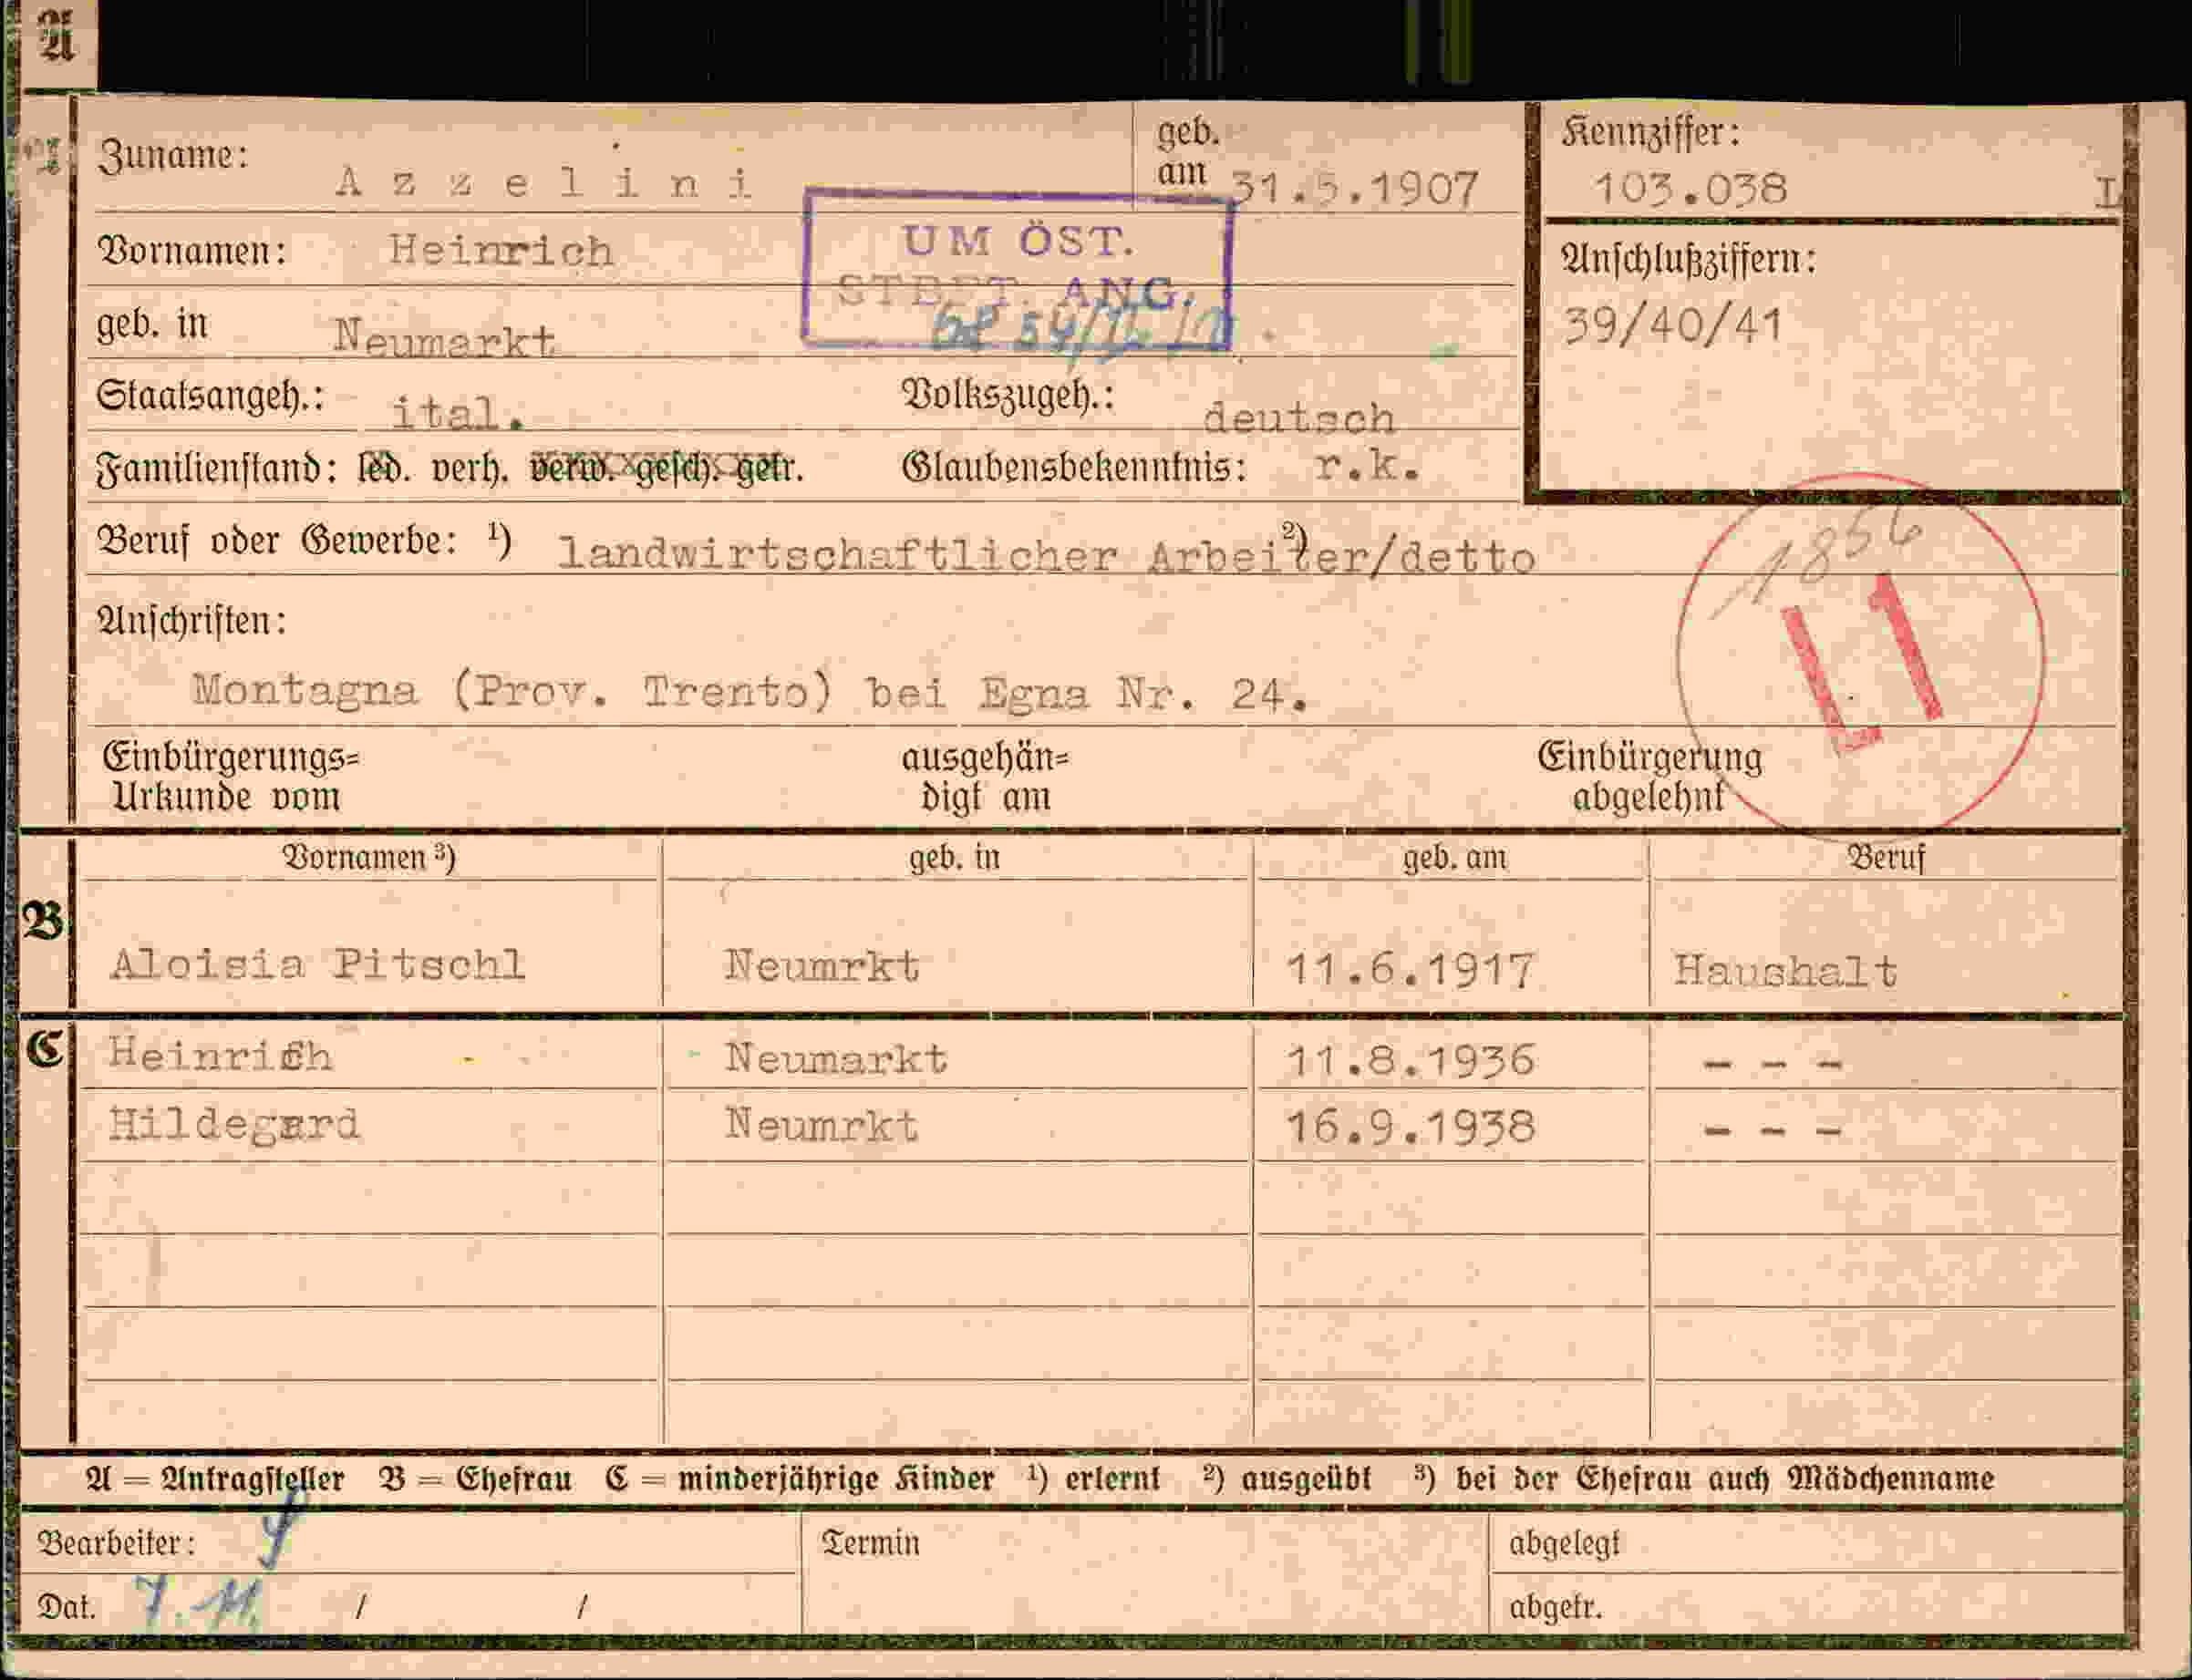 A
Zuname: Azzelini geb. am 31.5.1907
Kennziffer: 103.038 I
Vornamen: Heinrich
UM ÖST.
STBFT. ANG.
Anschlußziffern:
39/40/41
geb. in Neumarkt
Staatsangeh.: ital. Volkszugeh.: deutsch
Familienstand: led. verh. verw. gesch. getr. Glaubensbekenntnis: r.k.
Beruf oder Gewerbe: ¹) landwirtschaftlicher Arbeiter/detto ²)
1856
L1
Anschriften:
Montagna (Prov. Trento) bei Egna Nr. 24.
Einbürgerungs= ausgehän= Einbürgerung
Urkunde vom digt am abgelehnt
Vornamen ³) geb. in geb. am Beruf
B
Aloisia Pitschl Neumrkt 11.6.1917 Haushalt
C Heinrich Neumarkt 11.8.1936 - - -
Hildegard Neumrkt 16.9.1938 - - -
A = Antragsteller B = Ehefrau C = minderjährige Kinder ¹) erlernt ²) ausgeübt ³) bei der Ehefrau auch Mädchenname
Bearbeiter: Termin abgelegt
Dat. 7. 11. / / abgetr.